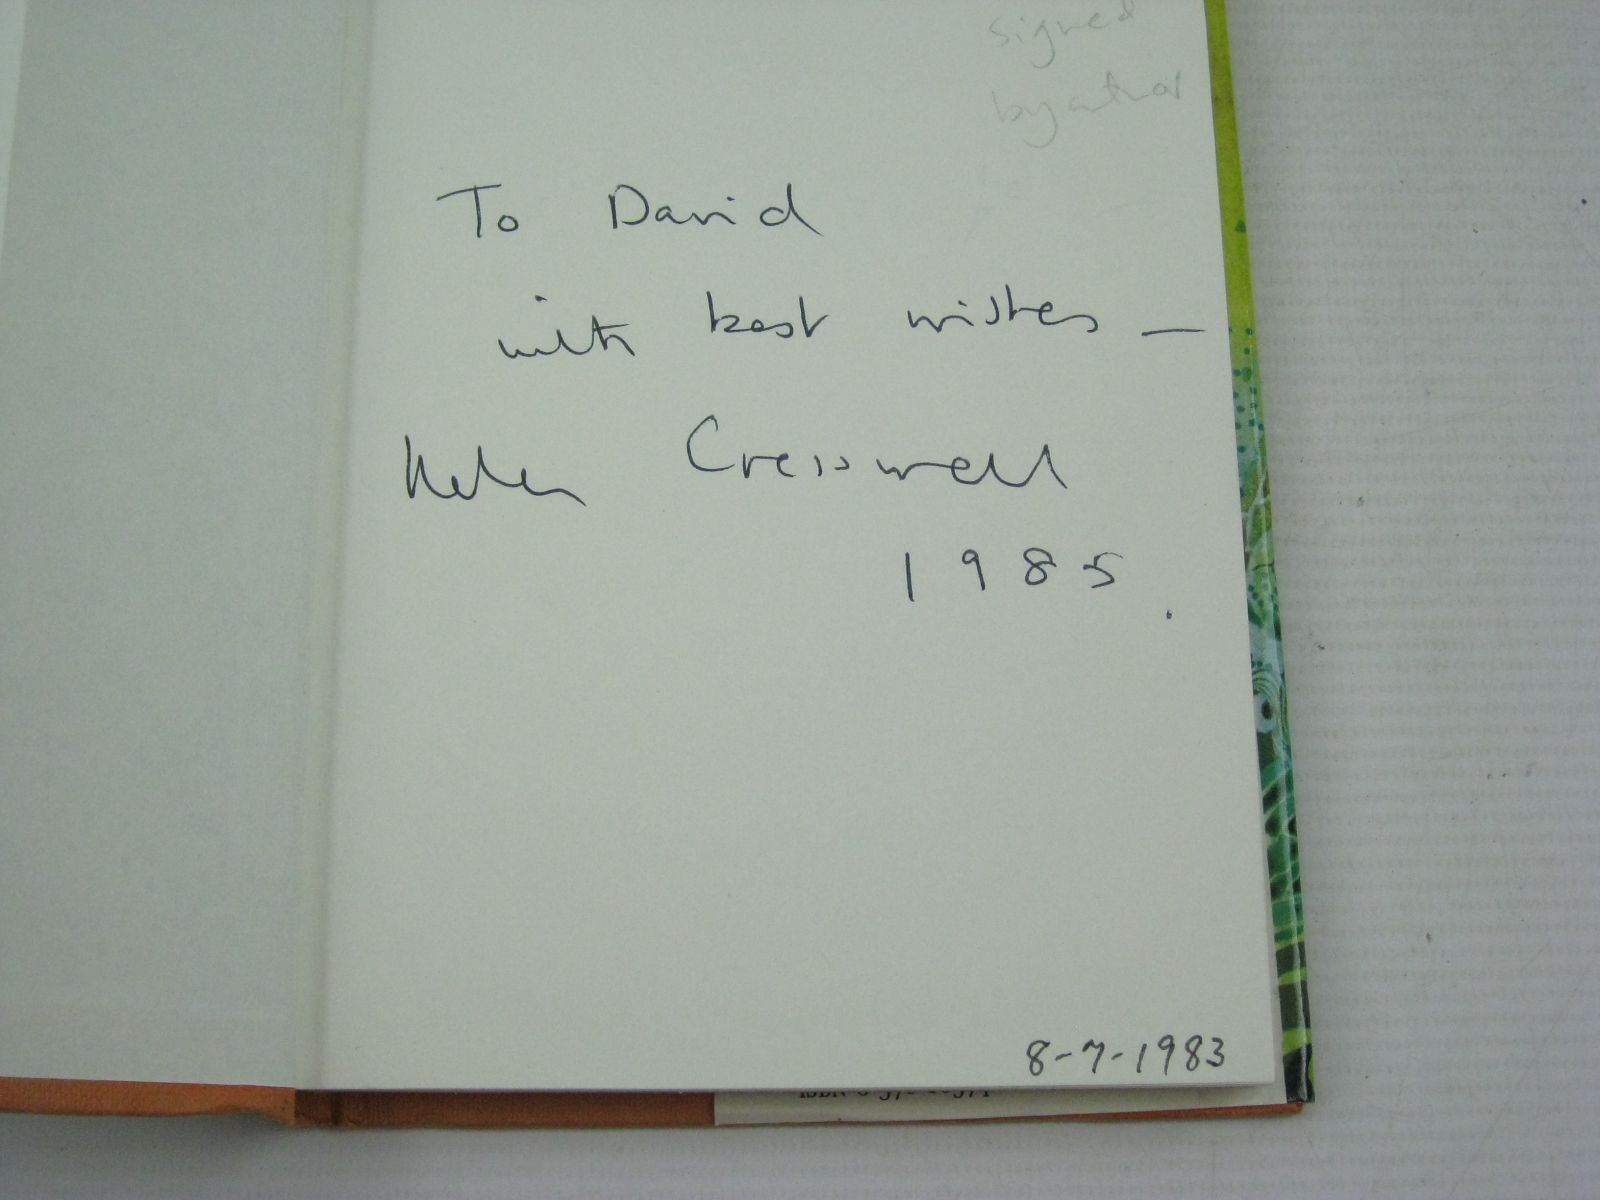 signed
by author
To David
with best wishes —
Helen Cresswell
1985.
8-7-1983